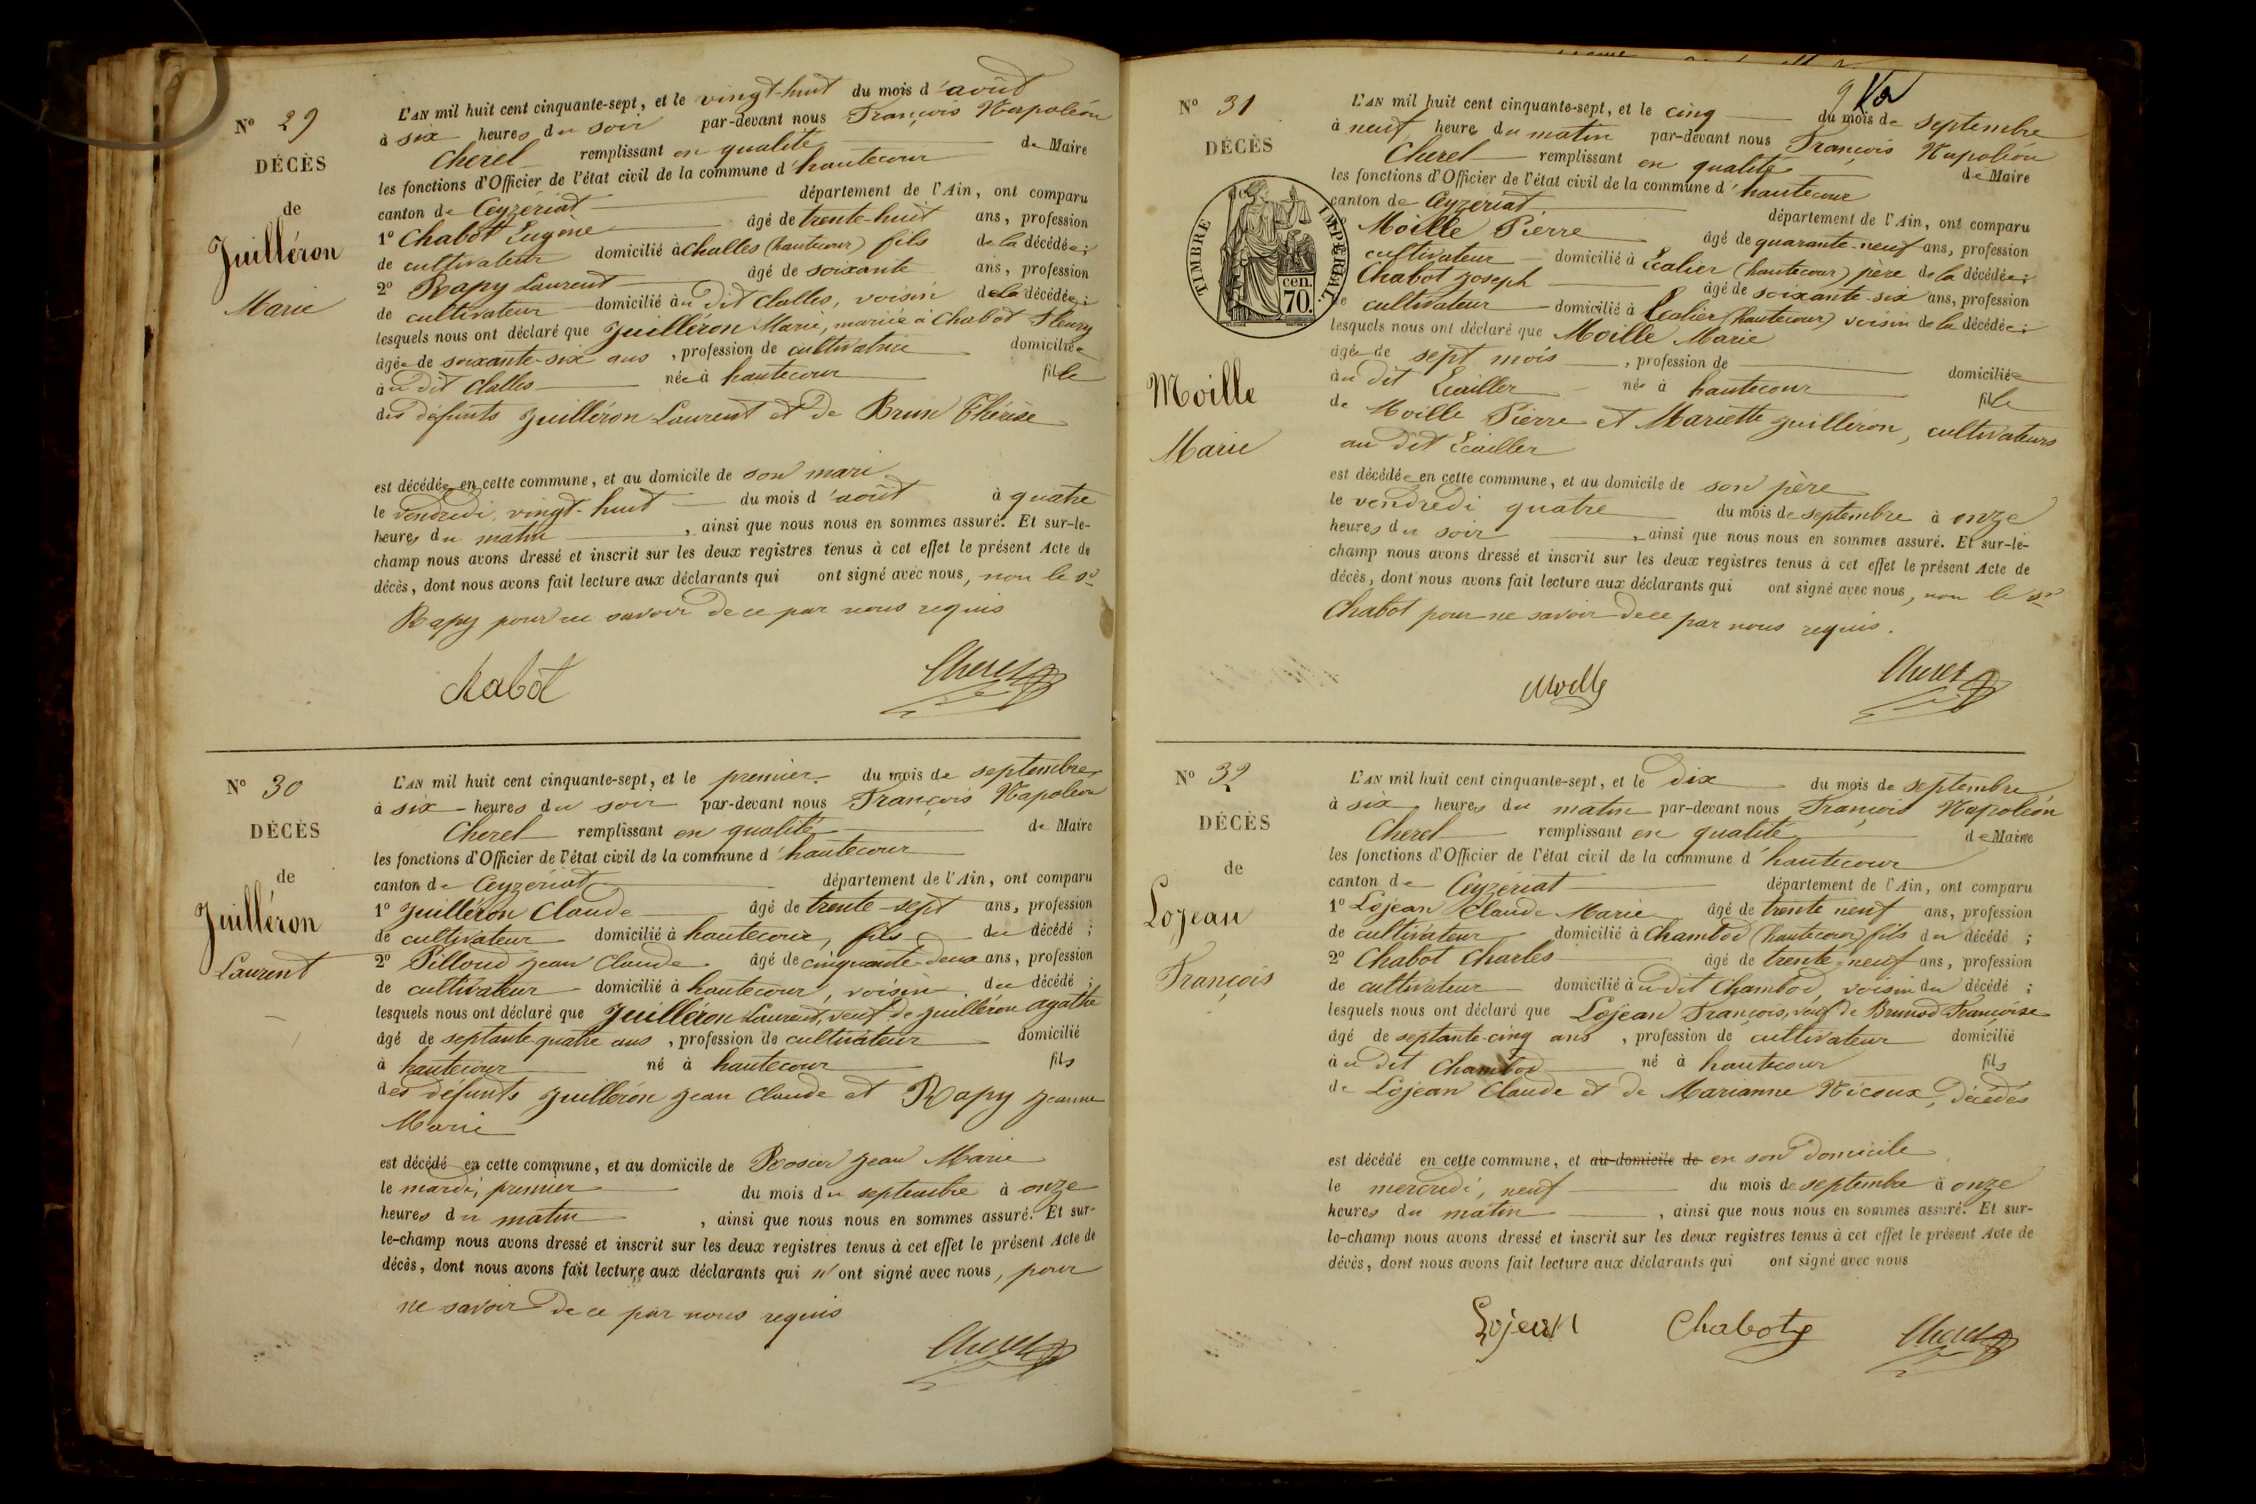 N° 29
DÉCÈS
de
Juilléron
Marie
L'AN mil huit cent cinquante-sept, et le vingt-huit du mois d'août
à six heures du soir par-devant nous François Napoléon
Cherel remplissant en qualité de Maire
les fonctions d'Officier de l'état civil de la commune d'hautecour
canton de Ceyzériat département de l'Ain, ont comparu
1° Chabot Eugène âgé de trente-huit ans, profession
de cultivateur domicilié à Challes (hautecour) fils de la décédée;
2° Rapy Laurent âgé de soixante ans, profession
de cultivateur domicilié au dit Challes, voisin de la décédée;
lesquels nous ont déclaré que Juilléron Marie, mariée à Chabot Fleury
âgée de soixante-six ans, profession de cultivatrice domiciliée
au dit Challes née à hautecour fille
des défunts Juilléron Laurent et de Brun Thérèse
est décédée en cette commune, et au domicile de son mari
le vendredi, vingt-huit du mois d'août à quatre
heures du matin, ainsi que nous nous en sommes assuré. Et sur-le-
champ nous avons dressé et inscrit sur les deux registres tenus à cet effet le présent Acte de
décès, dont nous avons fait lecture aux déclarants qui ont signé avec nous, non le sr
Rapy pour ne savoir de ce par nous requis
Chabot Cherel
N° 30
DÉCÈS
de
Juilléron
Laurent
L'AN mil huit cent cinquante-sept, et le premier du mois de septembre
à six heures du soir par-devant nous François Napoléon
Cherel remplissant en qualité de Maire
les fonctions d'Officier de l'état civil de la commune d'hautecour
canton de Ceyzériat département de l'Ain, ont comparu
1° Juilléron Claude âgé de trente-sept ans, profession
de cultivateur domicilié à hautecour, fils du décédé;
2° Pilloud Jean Claude âgé de cinquante-deux ans, profession
de cultivateur domicilié à hautecour, voisin du décédé;
lesquels nous ont déclaré que Juilléron Laurent, veuf de Juilléron Agathe
âgé de septante quatre ans, profession de cultivateur domicilié
à hautecour né à hautecour fils
des défunts Juilléron Jean Claude et Rapy Jeanne
Marie
est décédé en cette commune, et au domicile de Rosier Jean Marie
le mardi, premier du mois du septembre à onze
heures du matin, ainsi que nous nous en sommes assuré. Et sur-
le-champ nous avons dressé et inscrit sur les deux registres tenus à cet effet le présent Acte de
décès, dont nous avons fait lecture aux déclarants qui n'ont signé avec nous, pour
ne savoir de ce par nous requis
Cherel
N° 31
DÉCÈS
TIMBRE IMPÉRIAL.
cen.
70.
Moille
Marie
L'AN mil huit cent cinquante-sept, et le cinq du mois de septembre
à neuf heure du matin par-devant nous François Napoléon
Cherel remplissant en qualité de Maire
les fonctions d'Officier de l'état civil de la commune d'hautecour
canton de Ceyzériat département de l'Ain, ont comparu
Moille Pierre âgé de quarante-neuf ans, profession
cultivateur domicilié à Ecalier (hautecour) père de la décédée;
Chabot Joseph âgé de soixante-six ans, profession
de cultivateur domicilié à Ecalier (hautecour) voisin de la décédée;
lesquels nous ont déclaré que Moille Marie
âgée de sept mois, profession de domiciliée
au dit Ecailler née à hautecour fille
de Moille Pierre et Mariette Juilléron, cultivateurs
au dit Ecailler
est décédée en cette commune, et au domicile de son père
le vendredi quatre du mois de septembre à onze
heures du soir, ainsi que nous nous en sommes assuré. Et sur-le-
champ nous avons dressé et inscrit sur les deux registres tenus à cet effet le présent Acte de
décès, dont nous avons fait lecture aux déclarants qui ont signé avec nous, non le sr
Chabot pour ne savoir de ce par nous requis.
Moille Cherel
N° 32
DÉCÈS
de
Lojean
François
L'AN mil huit cent cinquante-sept, et le dix du mois de septembre
à six heures du matin par-devant nous François Napoléon
Cherel remplissant en qualité de Maire
les fonctions d'Officier de l'état civil de la commune d'hautecour
canton de Ceyzériat département de l'Ain, ont comparu
1° Lojean Claude Marie âgé de trente neuf ans, profession
de cultivateur domicilié à Chambod (hautecour) fils du décédé;
2° Chabot Charles âgé de trente-neuf ans, profession
de cultivateur domicilié au dit Chambod, voisin du décédé;
lesquels nous ont déclaré que Lojean François, veuf de Brunod Françoise
âgé de septante-cinq ans, profession de cultivateur domicilié
au dit Chambod né à hautecour fils
de Lojean Claude et de Marianne Nicoux, décédés
est décédé en cette commune, et au domicile de en son domicile
le mercredi, neuf du mois de septembre à onze
heures du matin, ainsi que nous nous en sommes assuré. Et sur-
le-champ nous avons dressé et inscrit sur les deux registres tenus à cet effet le présent Acte de
décès, dont nous avons fait lecture aux déclarants qui ont signé avec nous
Lojean Chabot Cherel